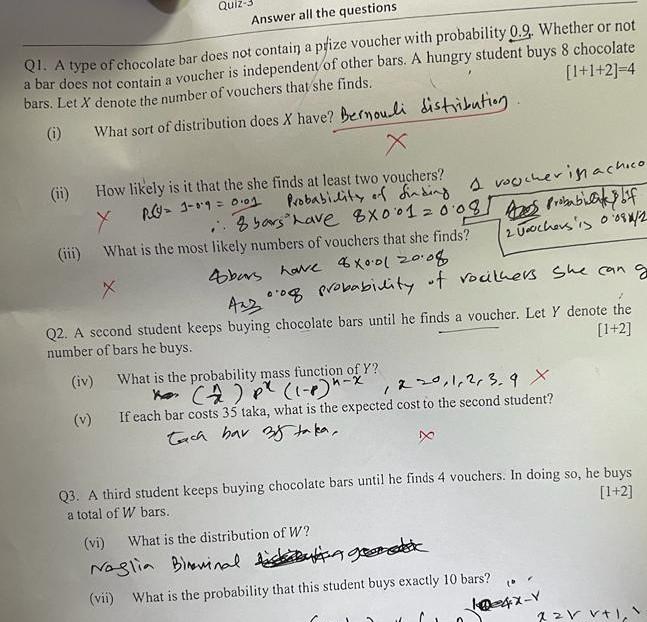 Quiz-3
Answer all the questions
Q1. A type of chocolate bar does not contain a prize voucher with probability 0.9. Whether or not
a bar does not contain a voucher is independent of other bars. A hungry student buys 8 chocolate
bars. Let X denote the number of vouchers that she finds. [1+1+2]=4
(i) What sort of distribution does X have? Bernouli distribution.
(ii) How likely is it that the she finds at least two vouchers?
1-0.9 = 0.01 Probability of finding 1 voucher in a choco
∴ 8 bars have 8x0.01 = 0.08 Probability of
2 vouchers is 0.08x1/2
(iii) What is the most likely numbers of vouchers that she finds?
8bars have 8x0.01 = 0.08
Ans 0.08 probability of vocihers she can g
Q2. A second student keeps buying chocolate bars until he finds a voucher. Let Y denote the
number of bars he buys. [1+2]
(iv) What is the probability mass function of Y?
(n x) p^x (1-p)^n-x , x = 0,1,2,3,9
(v) If each bar costs 35 taka, what is the expected cost to the second student?
Each bar 35 taka.
Q3. A third student keeps buying chocolate bars until he finds 4 vouchers. In doing so, he buys
a total of W bars. [1+2]
(vi) What is the distribution of W?
Naglia Binominal
(vii) What is the probability that this student buys exactly 10 bars?
x=r r+1,